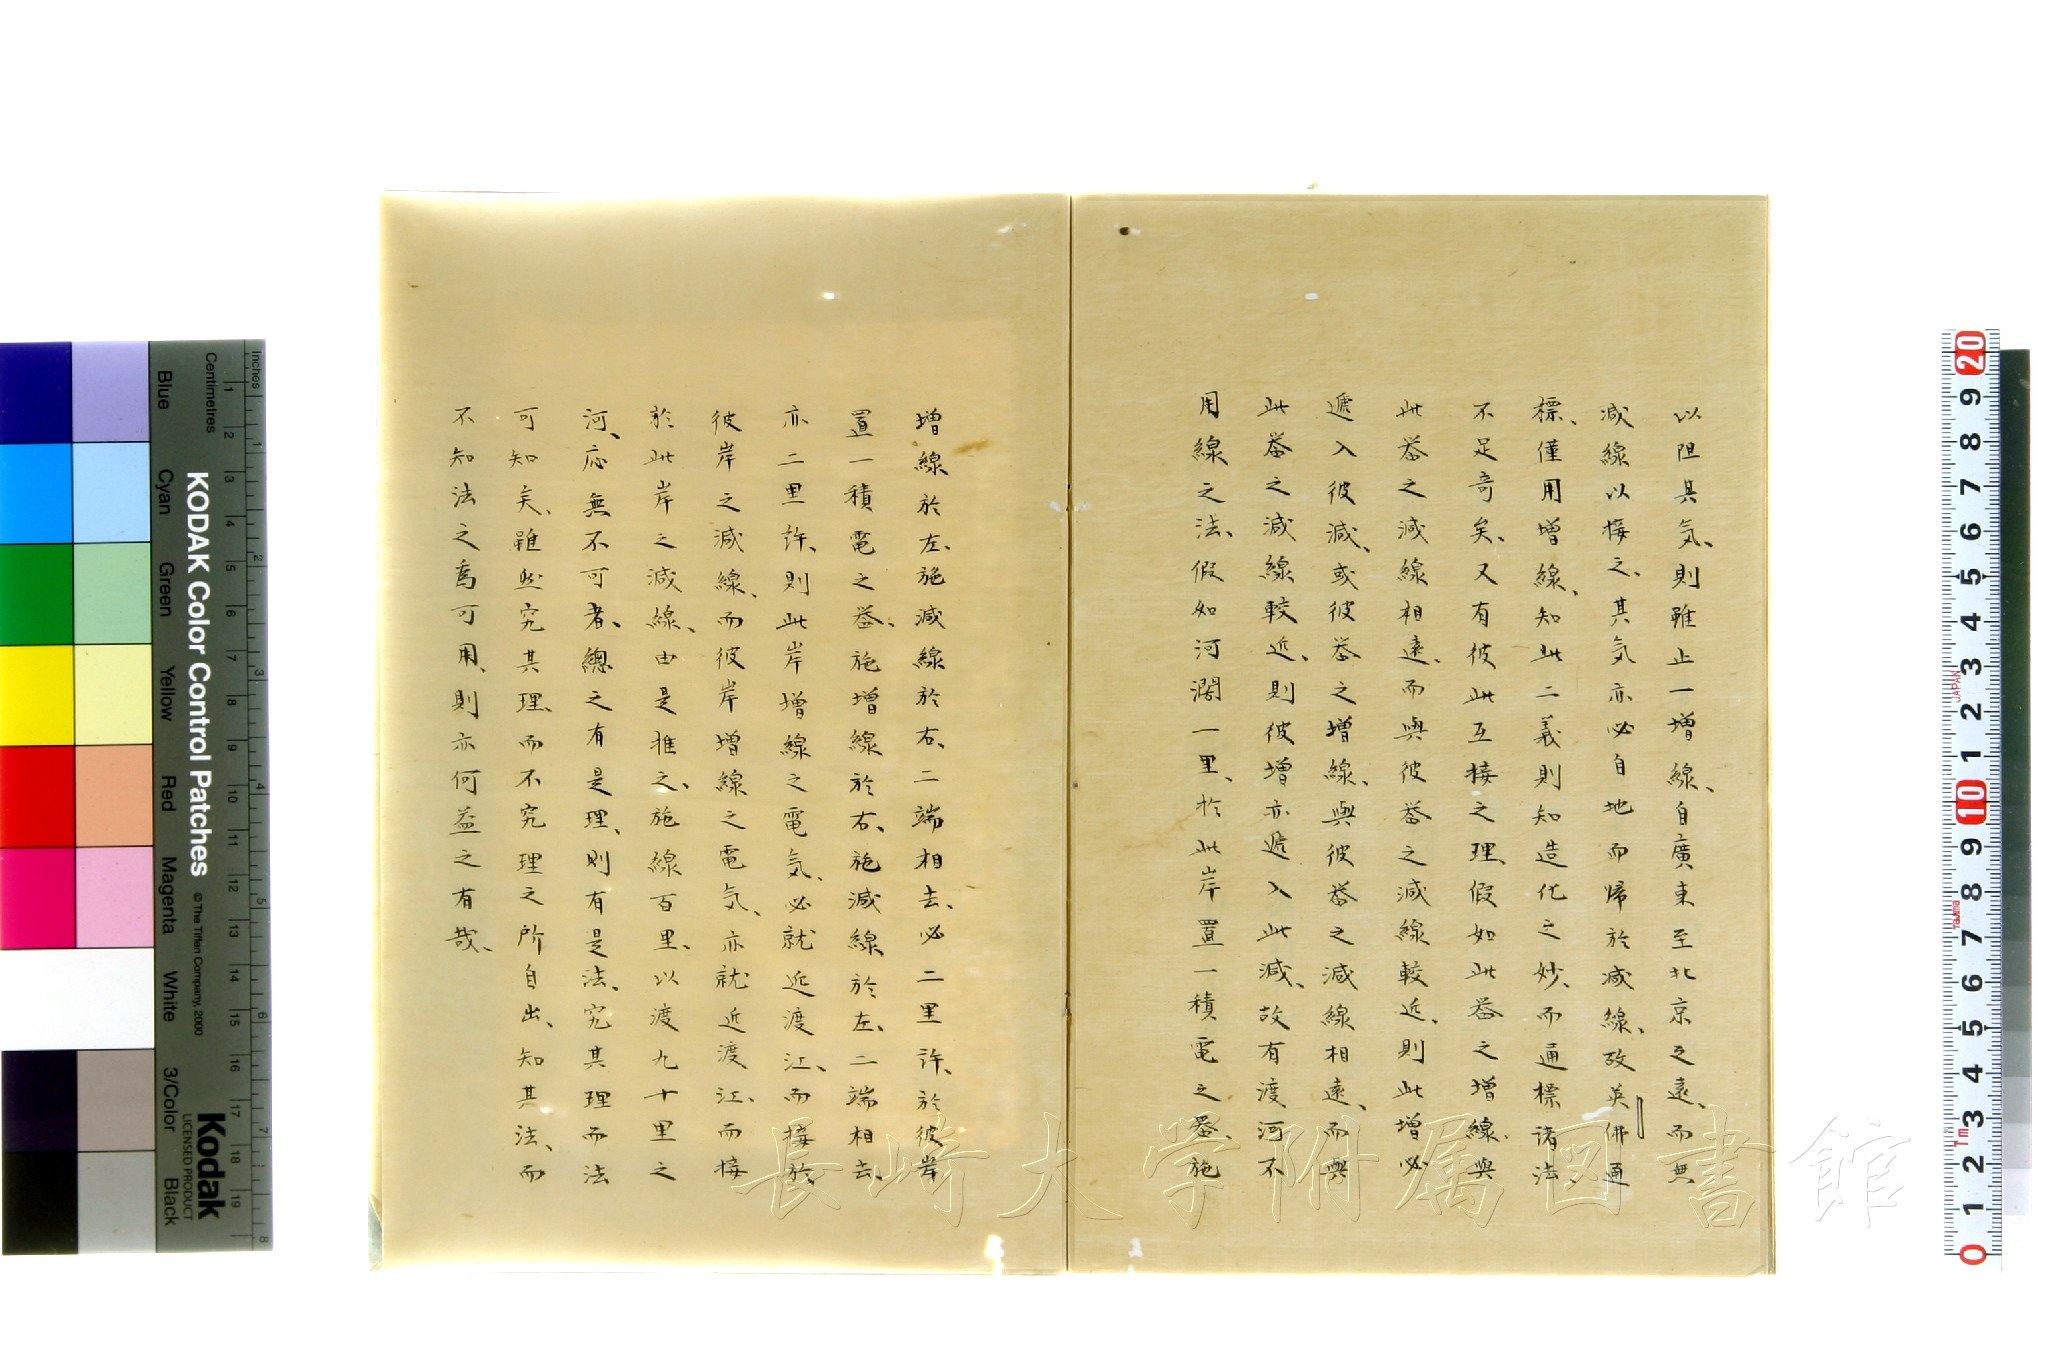 以阻其気、則雖止一増線、自廣東至北京之遠、而無
減線以接之、其気亦必自地而帰於減線、故英佛通
標、僅用増線、知此二義則知造化之妙、而通標諸法、
不足奇矣、又有彼此互接之理、假如此器之増線、與
此器之減線相遠、而與彼器之減線較近、則此増必
遞入彼減、或彼器之増線、與彼器之減線相遠、而與
此器之減線較近、則彼増亦遞入此減、故有渡河不
用線之法、假如河濶一里、於此岸置一積電之器、施
増線於左、施減線於右、二端相去、必二里許、於彼岸
置一積電之器、施増線於右、施減線於左、二端相去、
亦二里許、則此岸増線之電気、必就近渡江、而接於
彼岸之減線、而彼岸増線之電気、亦就近渡江、而接
於此岸之減線、由是推之、施線百里、以渡九十里之
河、応無不可者、總之有是理、則有是法、究其理而法
可知矣、雖然究其理、而不究理之所自出、知其法、而
不知法之奚可用、則亦何益之有哉、
長崎大学附属図書館
KODAK Color Control Patches
© The Tiffen Company, 2000
Kodak
LICENSED PRODUCT
Inches
Centimetres
1 2 3 4 5 6 7 8 9 10 11 12 13 14 15 16 17 18 19
1 2 3 4 5 6 7 8
Blue
Cyan
Green
Yellow
Red
Magenta
White
3/Color
Black
20 9 8 7 6 5 4 3 2 1 10 9 8 7 6 5 4 3 2 1 0
JAPAN
Tajima
1m